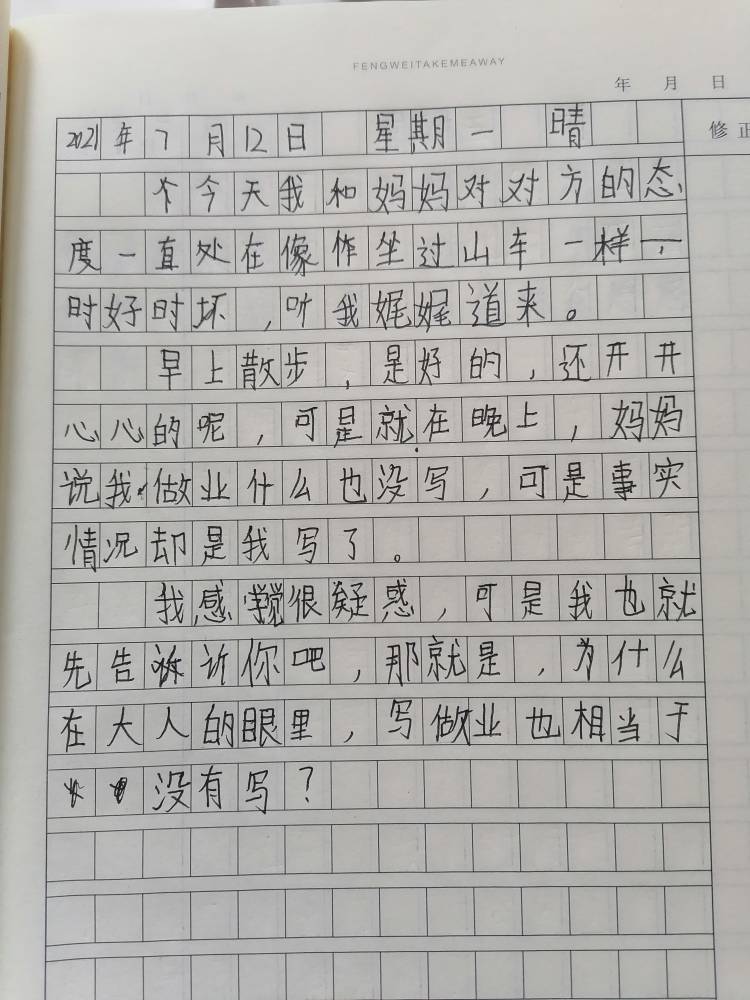 FENGWEITAKEMEAWAY
年 月 日
修正
2021年7月12日 星期一 晴
今天我和妈妈对对方的态
度一直处在像作坐过山车一样，
时好时坏，听我娓娓道来。
早上散步，是好的，还开开
心心的呢，可是就在晚上，妈妈
说我做业什么也没写，可是事实
情况却是我写了。
我感觉很疑惑，可是我也就
先告诉你吧，那就是，为什么
在大人的眼里，写做业也相当于
没有写？